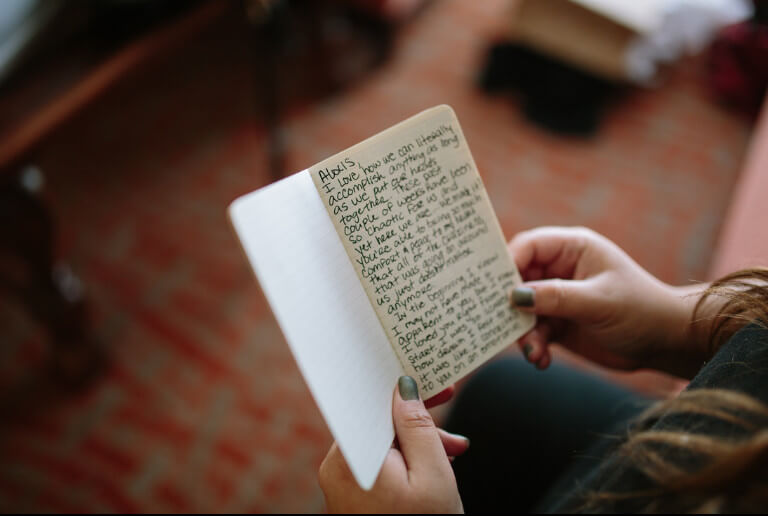 Alexis
I love how we can literally
accomplish anything as long
as we put our heads
together. These past
couple of weeks have been
so chaotic for us and
yet here we are. We made it!
you're able to bring so much
comfort & peace to my heart
that all of the craziness
that was going on around
us just doesn't matter
anymore.
In the beginning I know
I may not have made it
apparent to you but I knew
I loved you right from the
start. I was
how drawn I
it was like I
to you on an emotional